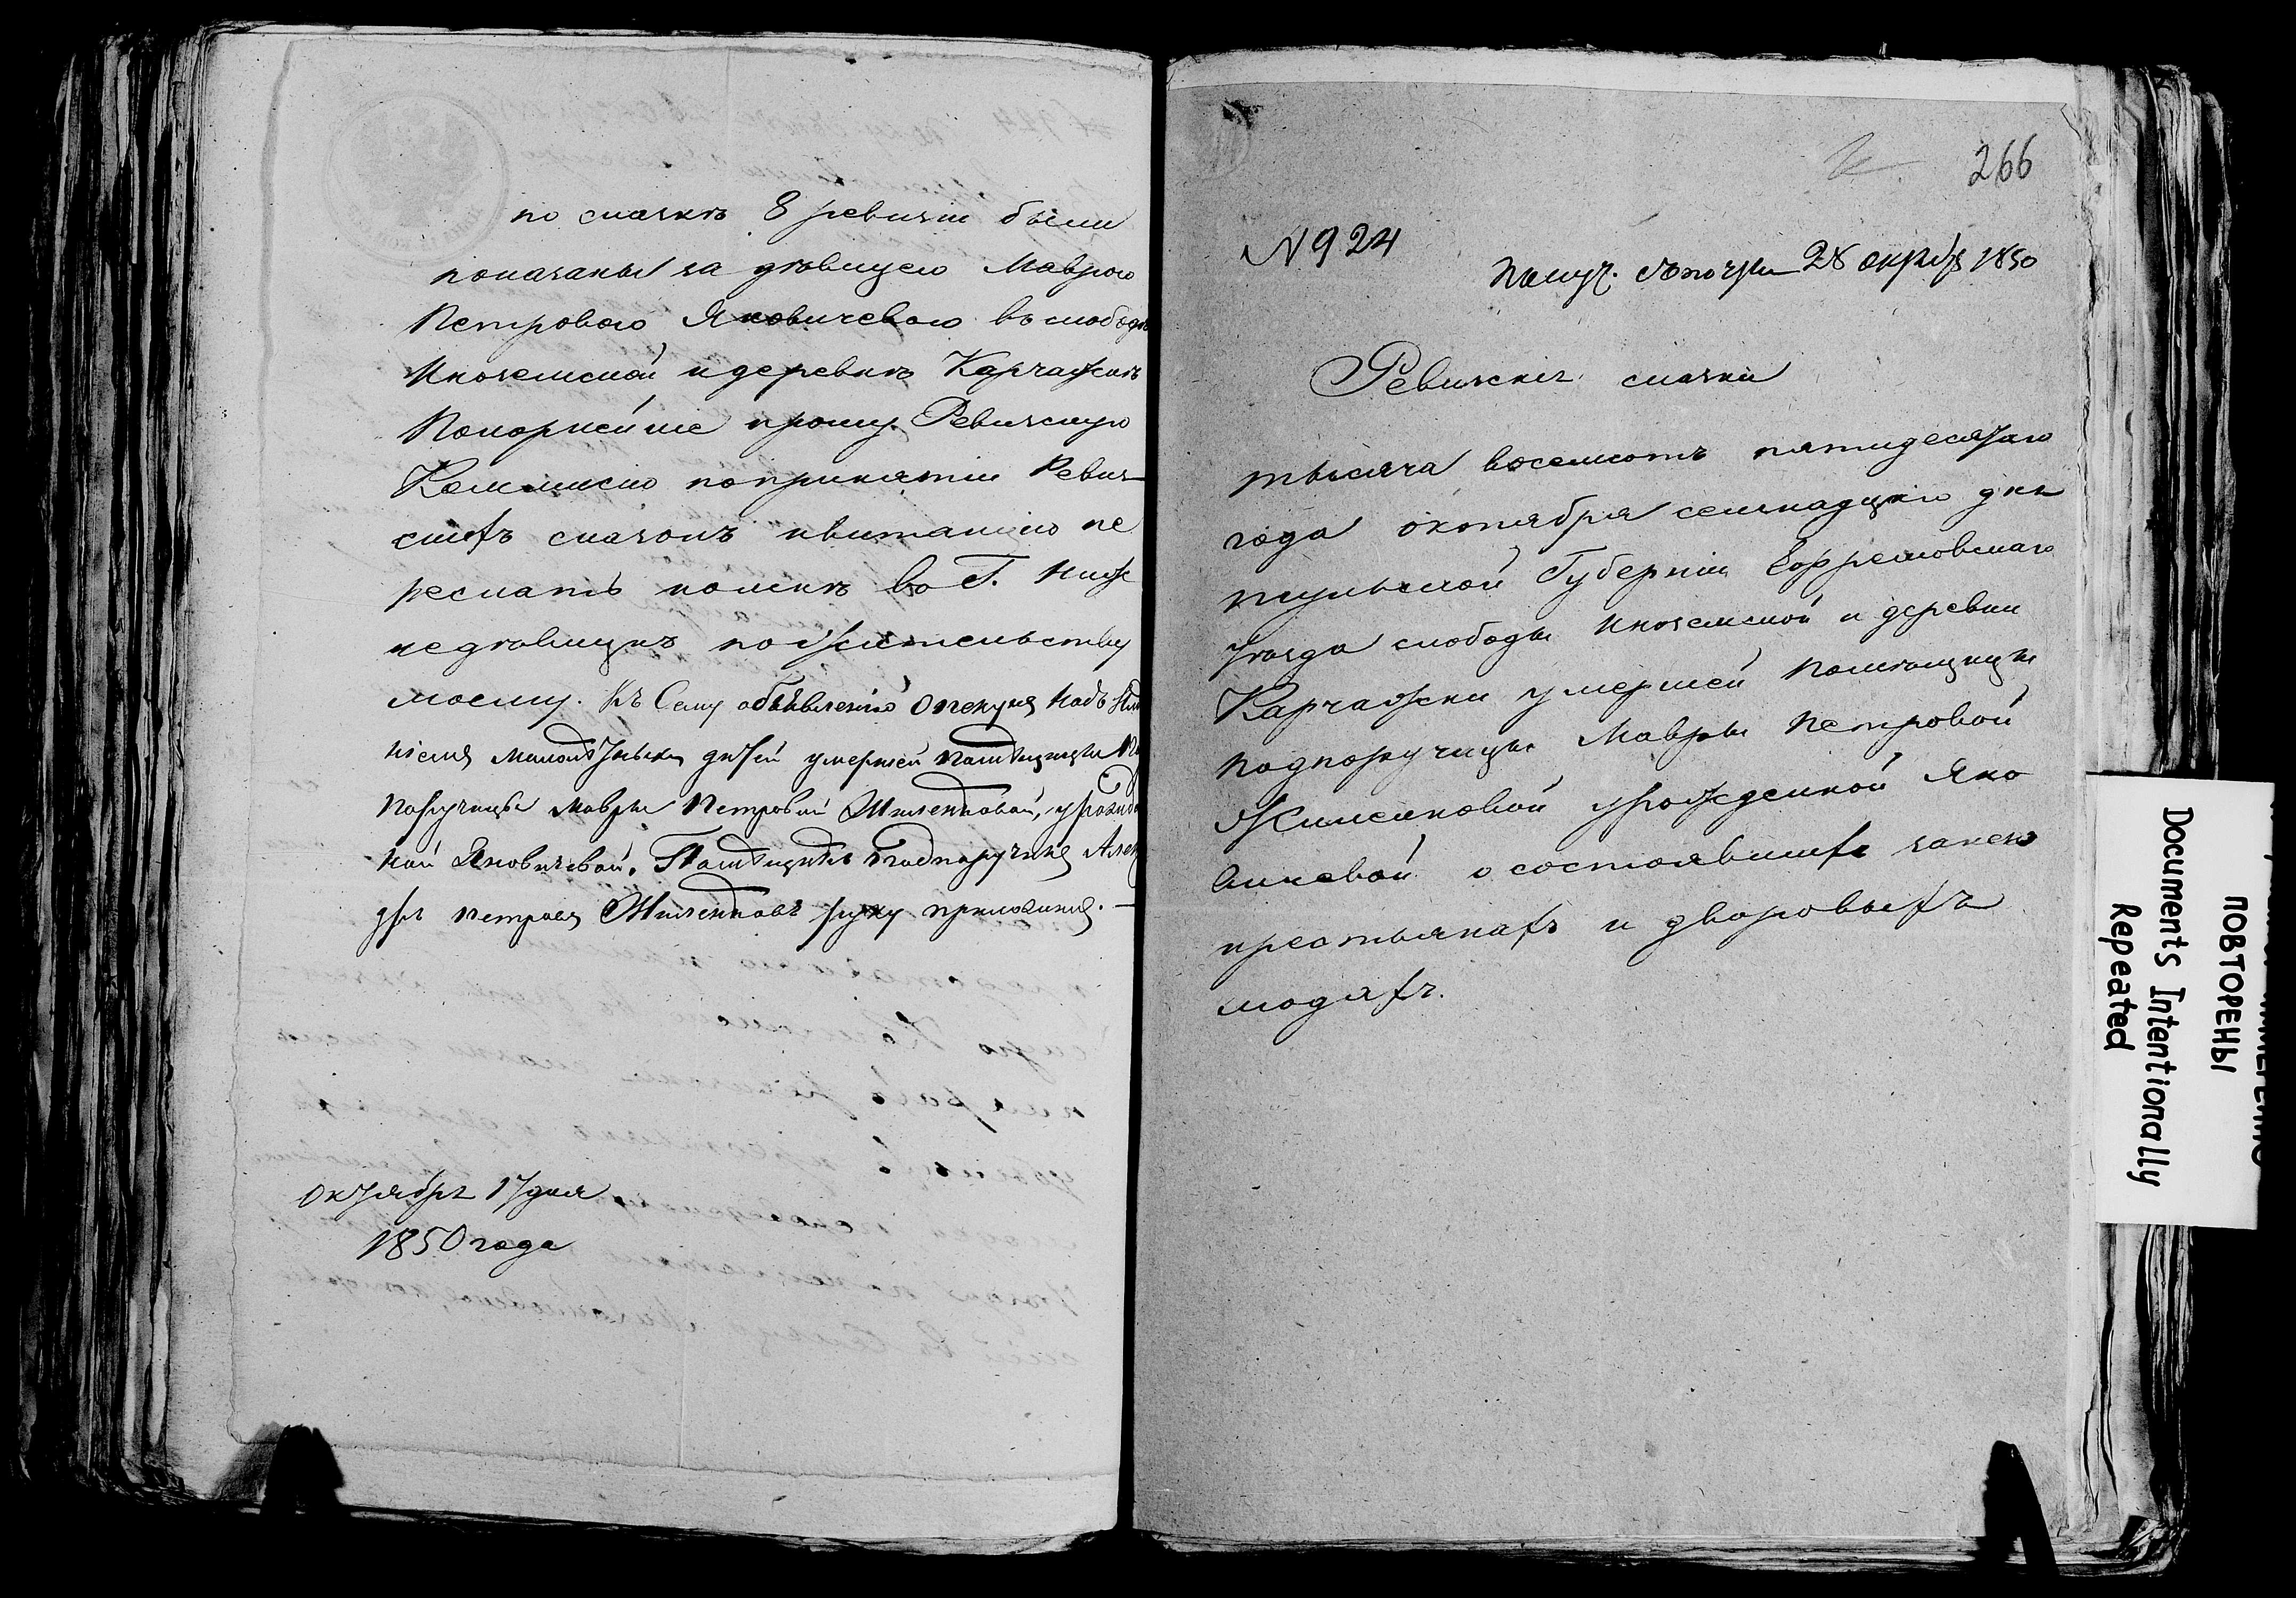 по сказкѣ 8 ревизіи были
показаны за дѣвицею Маврою
Петровою Яковичевою въ слободѣ
Иноземской и деревнѣ Карчажкѣ
Покорнейше прошу Ревизкую
Коммисію по принятіи Ревиз
скихъ сказокъ квитанцію пе
реслать комнѣ во Г.
недѣвицкъ по жительству
моему. Къ Сему объявленію опекунъ надъ
ніемъ малолѣтныхъ дѣтей умершей помѣщицы По
поручицы Мавры Петровой Жиленковой, урожде
ной Яковичевой, Помѣщикъ Подпоручикъ Алек
дръ Петровъ Жиленковъ руку приложилъ. —
Октября 17 дня
1850 года
266
N 924
Получ. съ почты 28 октября 1850
Ревизскіе сказки
тысяча восемсотъ пятидесятаго
года октября семнадцкго дня
тульской Губерніи Ефремовскаго
уѣзда слободы Иноземской и деревни
Карчажки умершей помѣщицы
подпоручицы Мавры Петровой
Жиленковой урожденной Яко
вичевой о состоявшихъ занею
крестьянахъ и дворовыхъ
людяхъ.
ПОВТОРЕНЫ
Documents Intentionally
Repeated